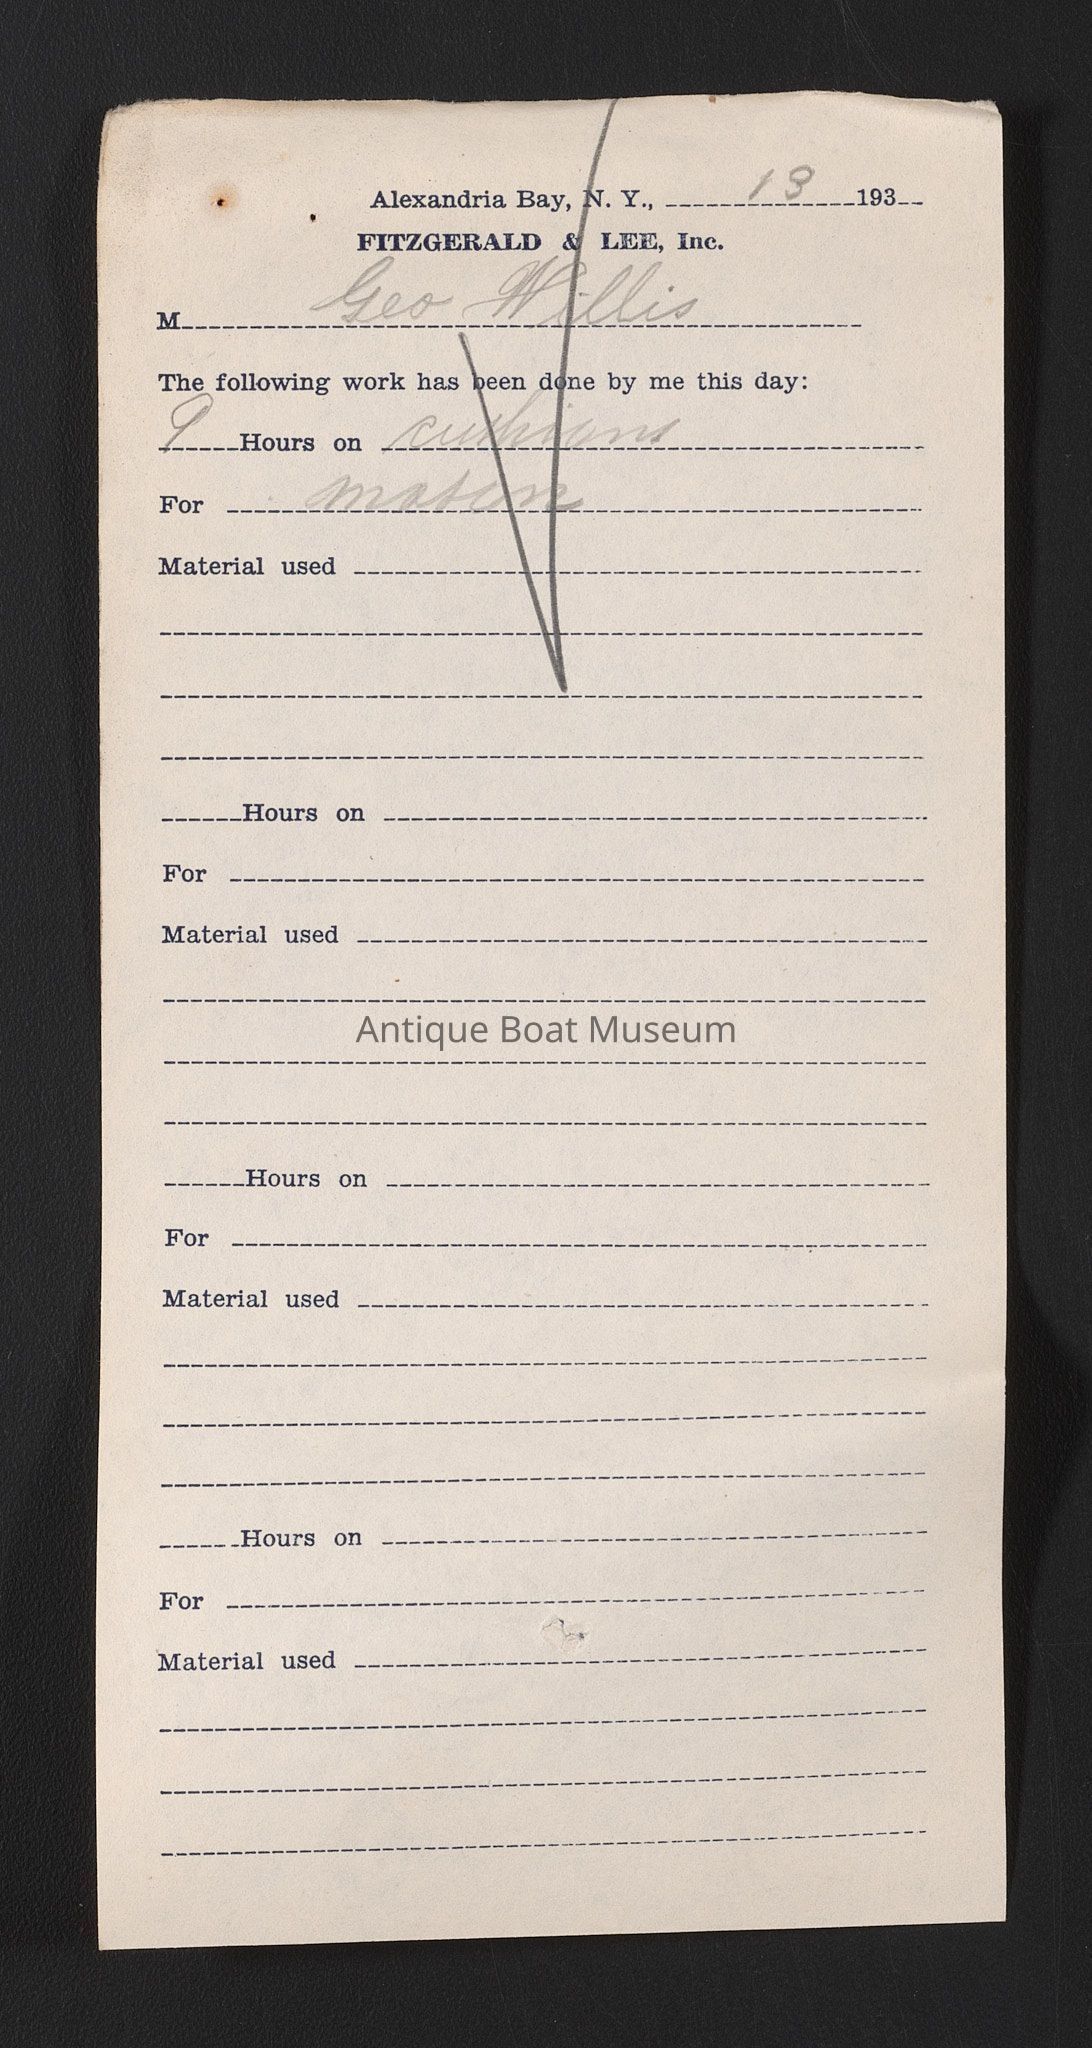 Alexandria Bay, N. Y., 13 193
FITZGERALD & LEE, Inc.
M Geo Willis
The following work has been done by me this day:
9 Hours on cushions
For
Material used
Hours on
For
Material used
Antique Boat Museum
Hours on
For
Material used
Hours on
For
Material used